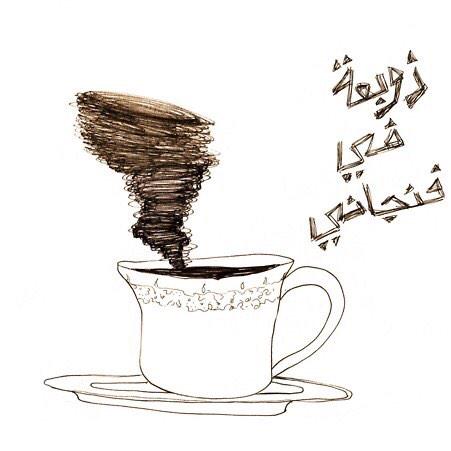 زوبعة
في
فنجاني